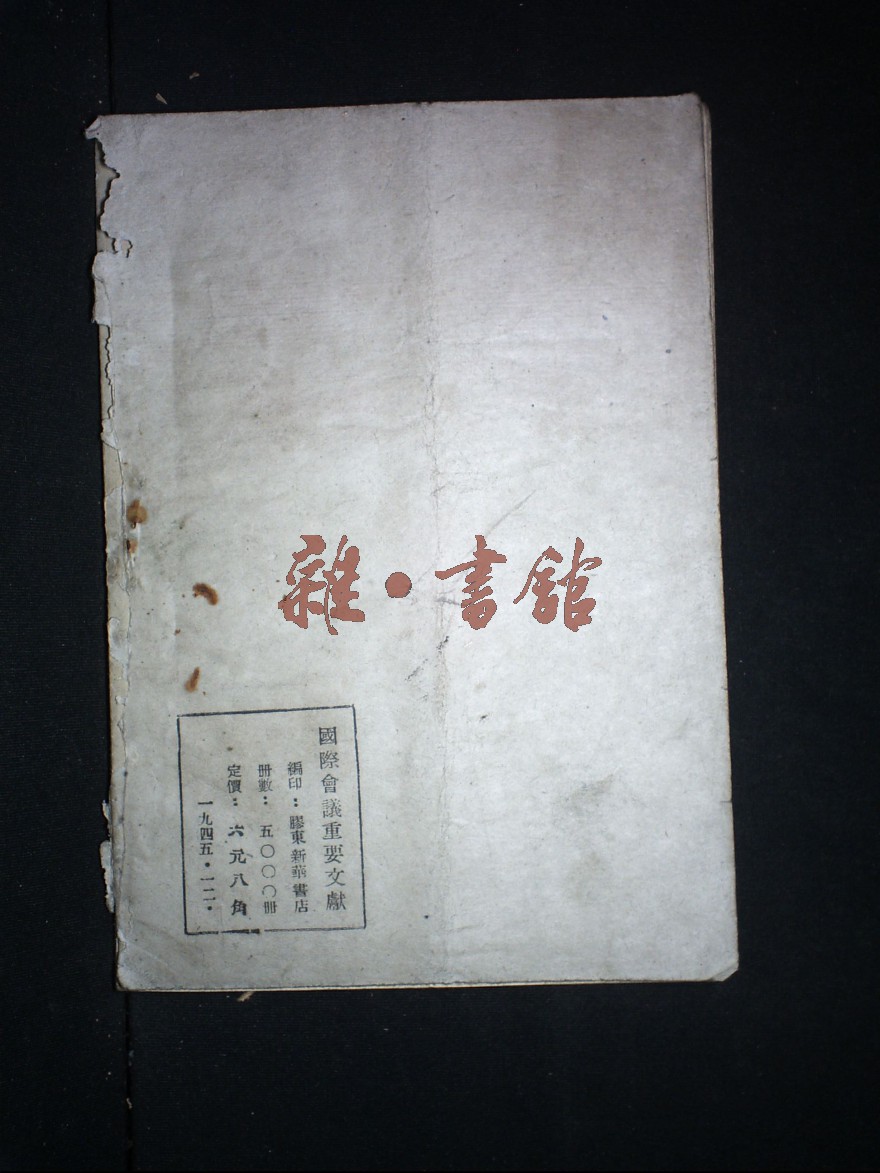 雜·書館
國際會議重要文獻
編印：膠東新華書店
冊數：五〇〇〇冊
定價：六元八角
一九四五·一二·